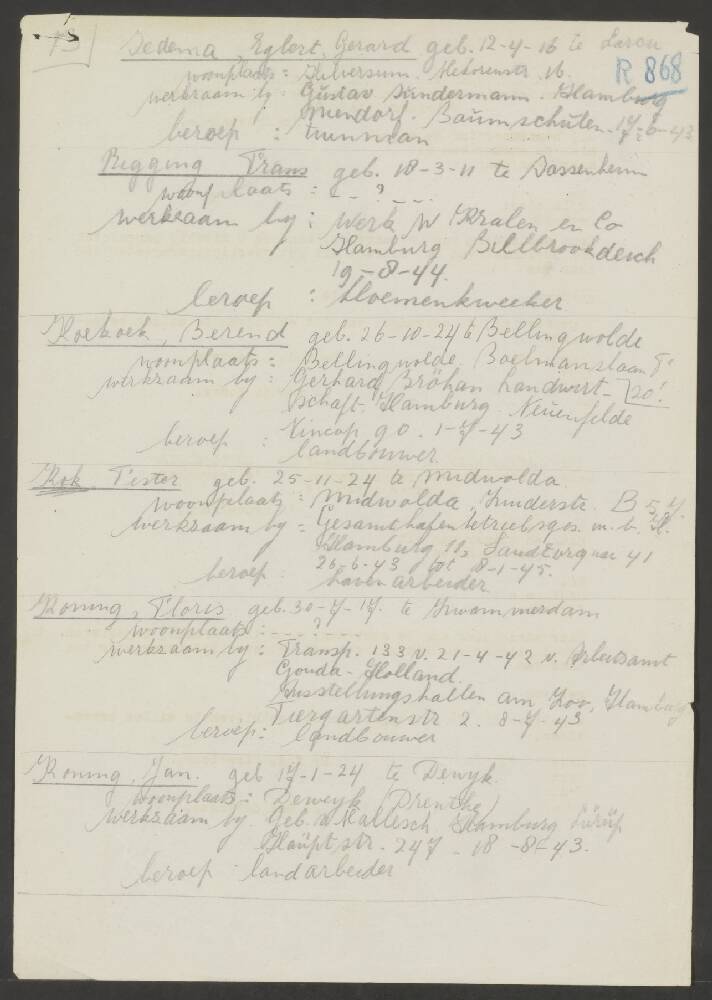 13
Jedema, Egbert, Gerard geb. 12-4-16 te Laren
R 868
woonplaats: Hilversum. 16.
werkzaam by: Gustav Sundermann. Hamburg
Baumschulen. 17-6-43
beroep : tuinman
Frans geb. 18-3-11 te Dassenheim
woonplaats : - - ? - - -
werkzaam by : Werk W Kralen en Co
Hamburg Billbrookdeich
19-8-44.
beroep : bloemenkweeker
Koekoek, Berend geb. 26-10-24 te Bellingwolde
woonplaats : Bellingwolde. Boelmanslaan
werkzaam by : Gerhard Bröhan Landwirt-
schaft. Hamburg. Neuenfelde
Vincop 90. 1-7-43
beroep : landbouwer.
Kok Pieter geb. 25-11-24 te Midwolda.
woonplaats : Midwolda, B 57.
werkzaam by = Gesamthafenbetriebsges. m. b. H.
Hamburg 11, 41
26-6-43 tot 8-1-45.
beroep : havenarbeider
Koning, Floris geb. 30-7-17. te Zwammerdam
woonplaats : - - - ? - - - -
werkzaam by : Transp. 133 v. 21-4-42 v. Arbeitsamt
Gouda - Holland.
Ausstellungshallen am Zoo, Hamburg
Tiergartenstr 2. 8-7-43
beroep : landbouwer
Koning, Jan. geb 17-1-24 te Dewyk
woonplaats : Deweyk (Drenthe)
werkzaam by Geb. Hamburg Lürüp
Hauptstr. 247 - 18-8-43.
beroep landarbeider